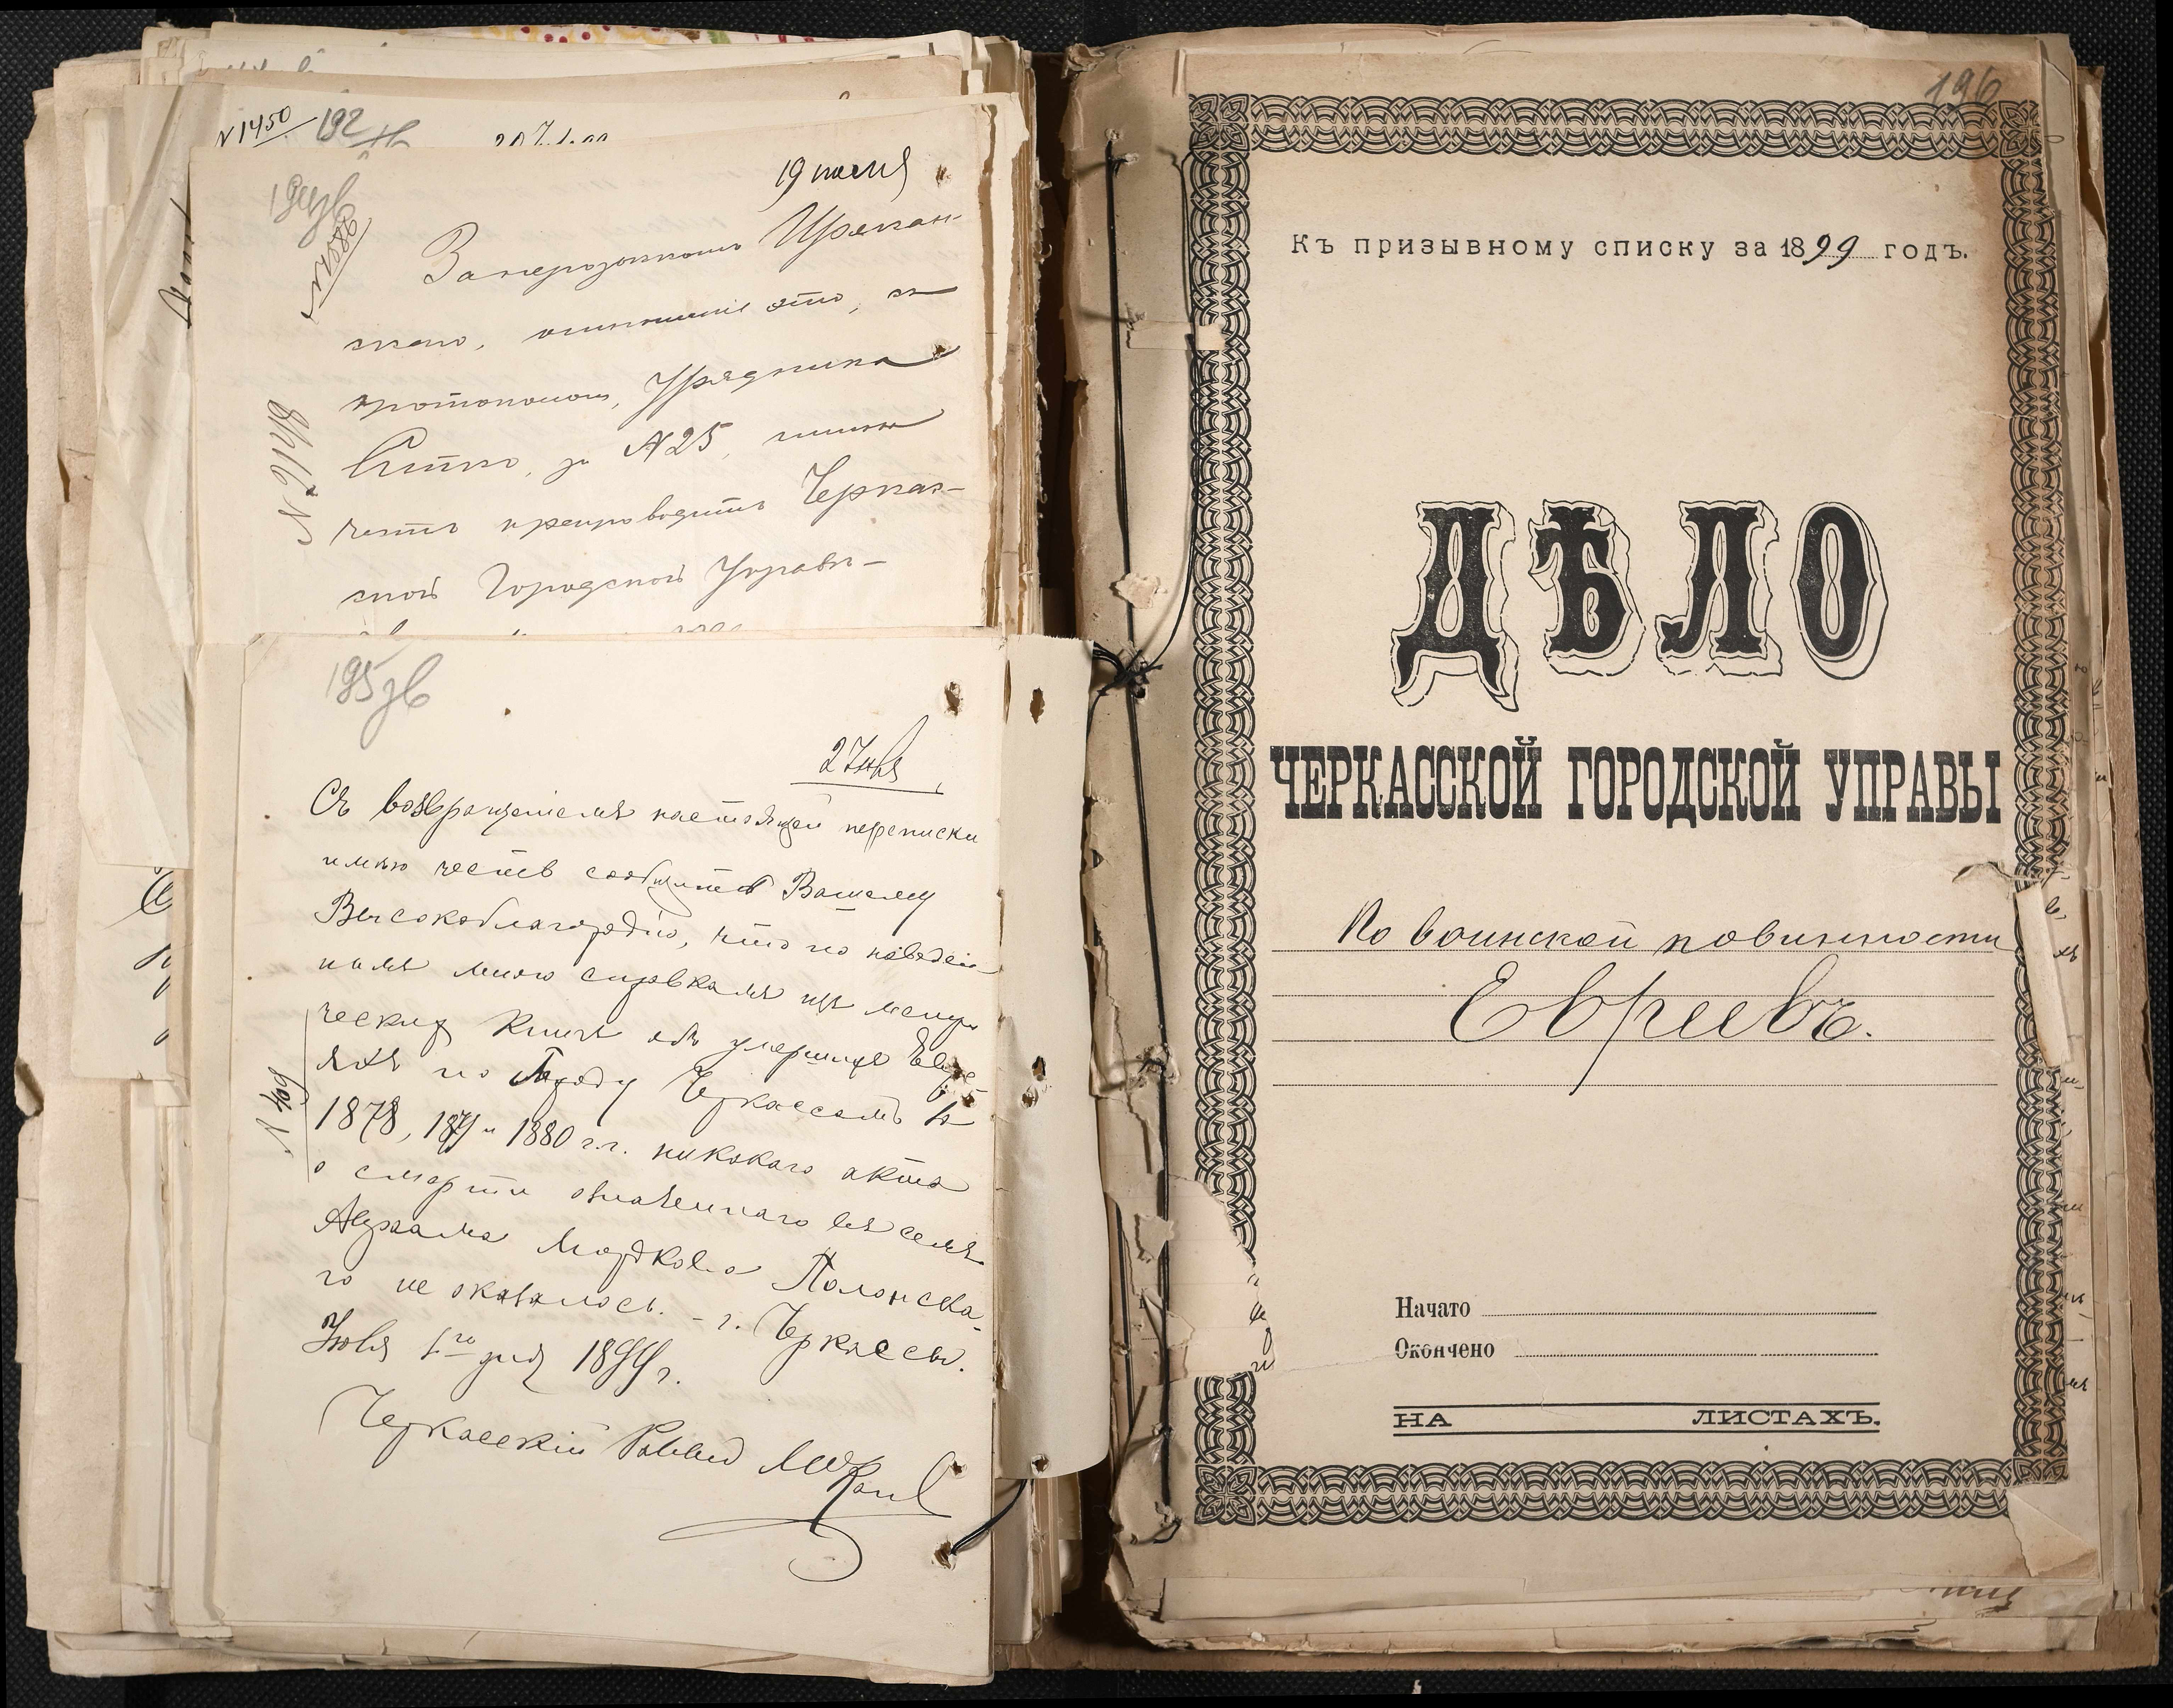 N 1450
192
19 июля
194 зв
N 1588
N 2148
Запорозскому
отношение это, съ
протоколом, Урядника
за N 25, имѣю
честь препроводить Черкас-
ской Городской Управѣ-
195 зв
2 Июля
Съ возвращеніемъ настоящей переписки
имѣю честь сообщить Вашему
Высокоблагородію, что по наведен-
нымъ мною справкамъ изъ метри
ческихъ книгъ объ умершихъ Евре-
яхъ по Городу Черкассамъ за
1878, 1879 и 1880 г.г. никакого акта
о смерти означеннаго въ семъ
Абрама Мордкова Полонска-
го не оказалось. - г. Черкассы.
Июля 1го дня 1899 г.
N 409
Черкасскій Раввинъ
196
Къ призывному списку за 1899 годъ.
ДѢЛО
ЧЕРКАССКОЙ ГОРОДСКОЙ УПРАВЫ
По воинской повинности
Евреевъ.
Начато
Окончено
НА ЛИСТАХЪ.